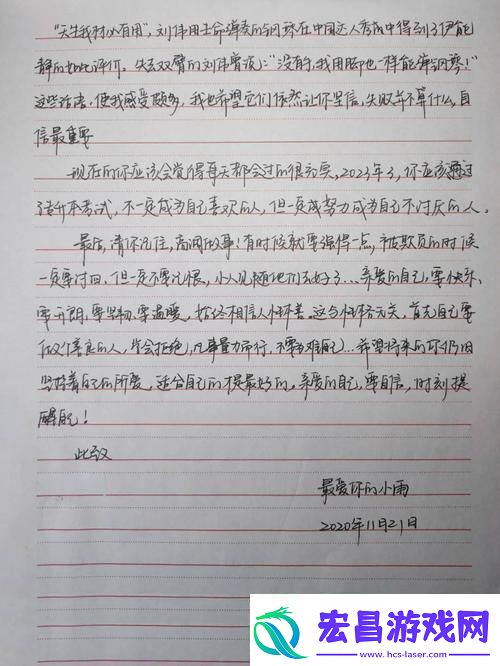 “天生我材必有用”,刘伟用生命弹奏的钢琴在中国达人秀中得到了伊能
静的如此评价。失去双臂的刘伟曾说:“没有手,我用脚也一样能弹钢琴!”
这些话语,使我感受颇多,我也希望它们依然让你坚信,失败并不算什么,自
信最重要
现在的你应该会觉得每天都会过的很充实,2023年了,你应该通过
专升本考试,不一定成为自己喜欢的人,但一定成努力成为自己不讨厌的人。
最后,请你记住,高调做事!有时候就要强得一点,被欺负的时候
一定要讨回,但一定不要记恨,小人见随他们去好了…亲爱的自己,要快乐、
要开朗,要坚韧,要温暖,始终相信人性本善。这与性格无关,首先自己要
做个善良的人,学会拒绝,凡事量力而行,不要为难自己…希望将来的你仍旧
坚持着自己的所爱,适合自己的才是最好的。亲爱的自己,要自信,时刻提
醒自己!
此致
最爱你的小雨
2020年11月21日
宏昌游戏网
www.hcs-laser.com